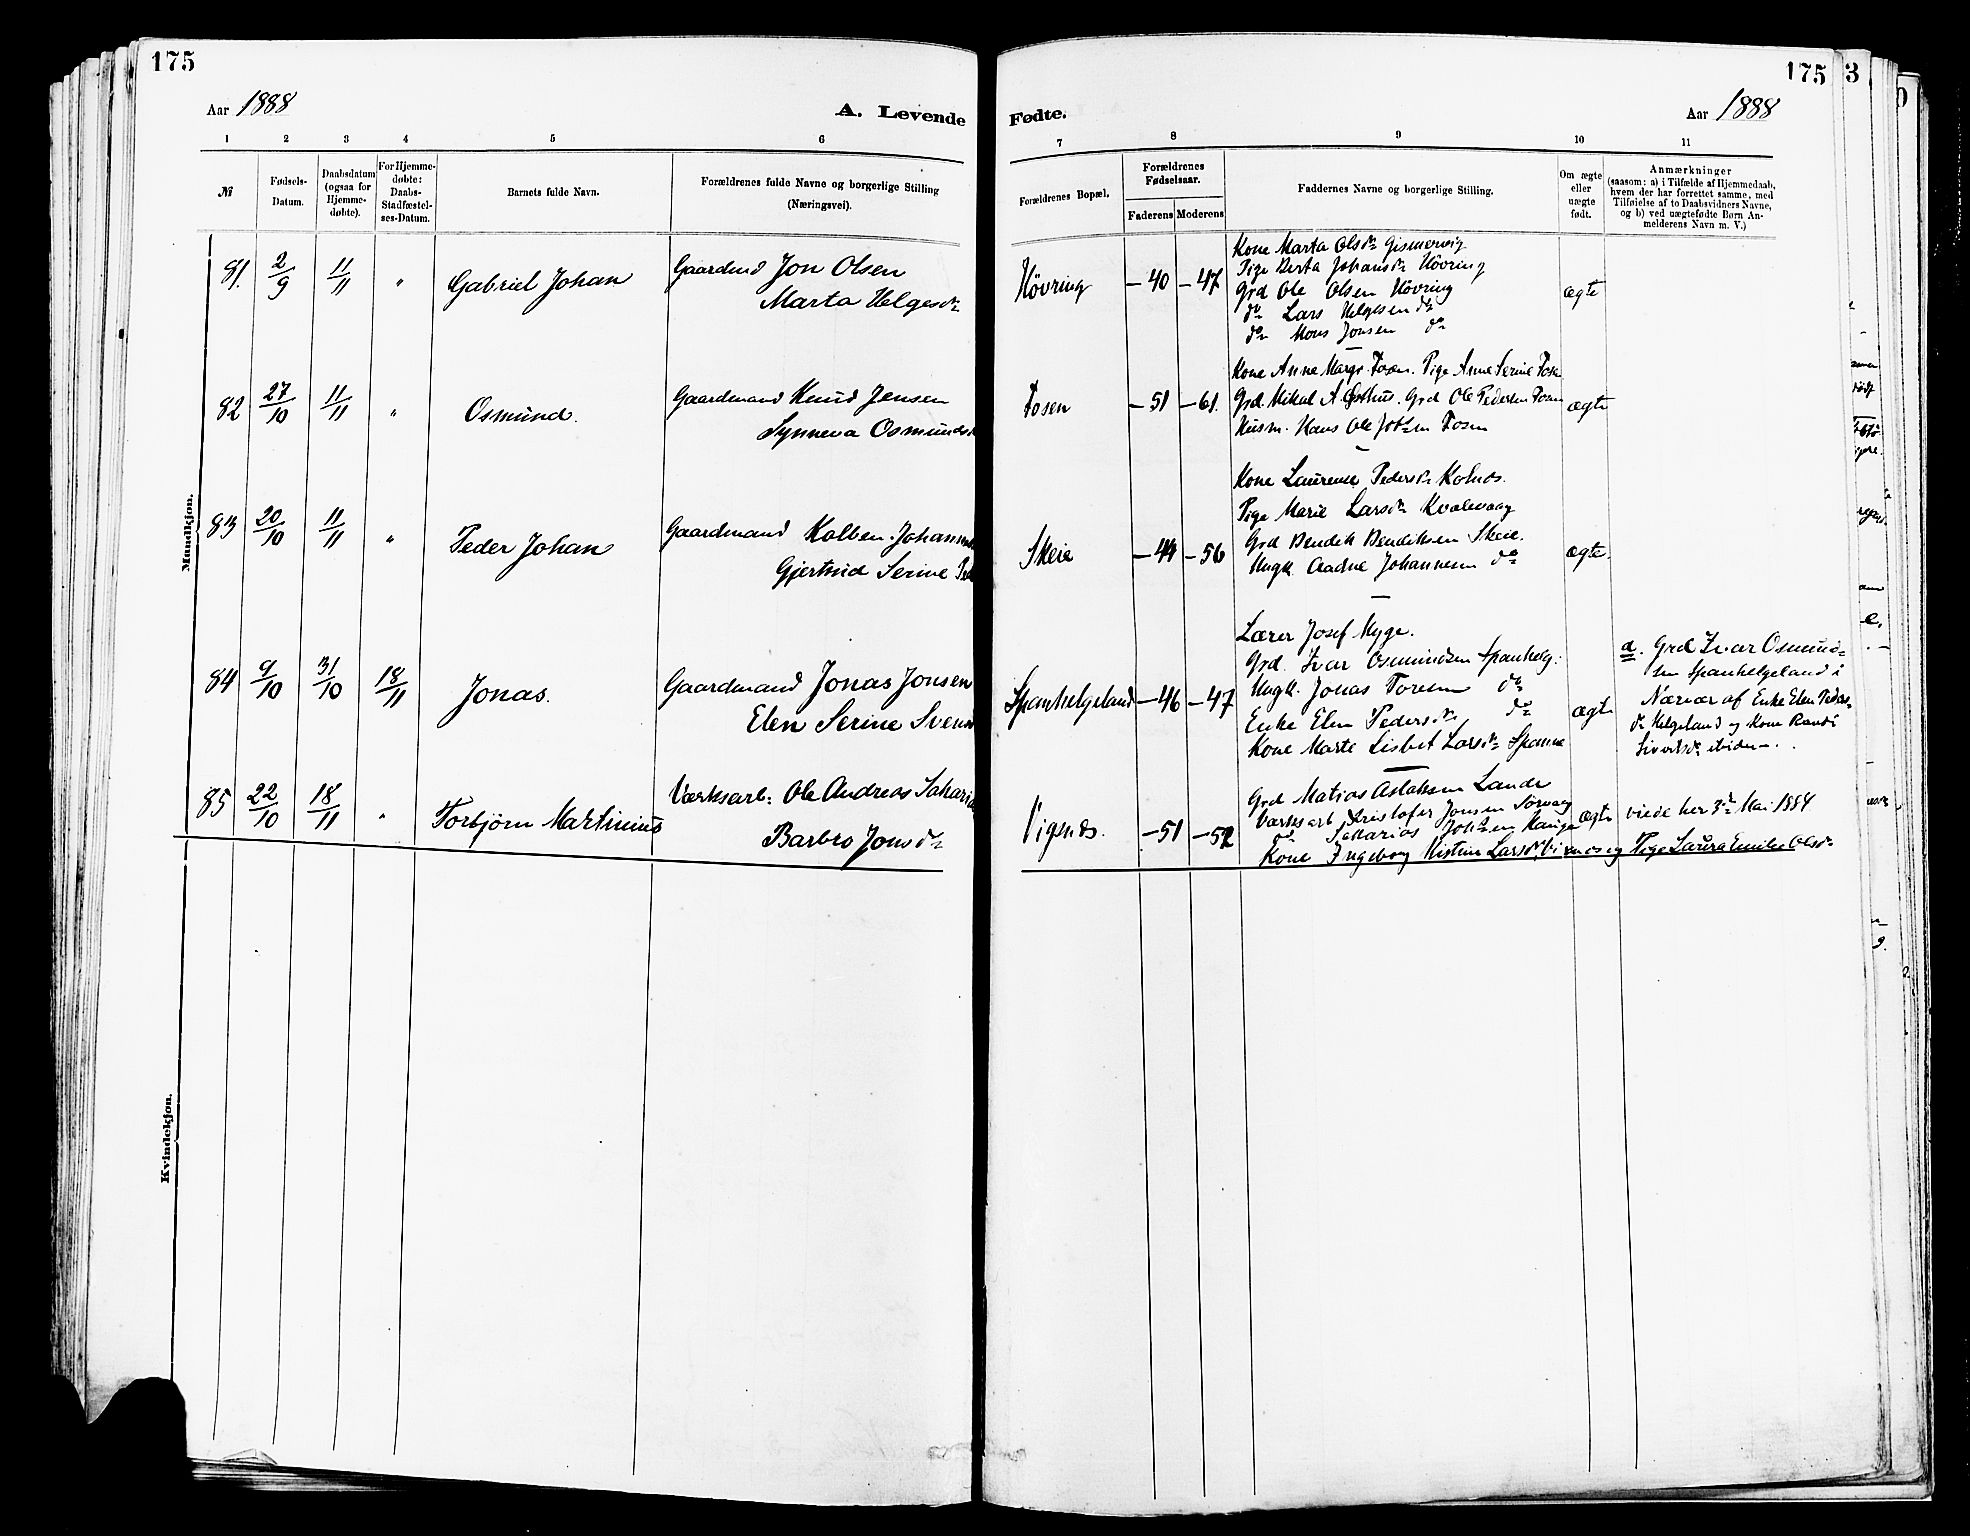 175
Aar 1888
A. Levende
1 2 3 4 5 6
№
Fødsels-Datum.
Daabsdatum (ogsaa for Hjemme-døbte).
For Hjemme-døbte: Daabs-Stadfæstel-ses-Datum.
Barnets fulde Navn.
Forældrenes fulde Navne og borgerlige Stilling
(Næringsvei).
Mandkjøn.
81. 2/9 11/11 " Gabriel Johan
Gaardmd Jon Olsen
Marta Helgesdr
82 27/10 11/11 " Osmund.
Gaardmand Knud Jensen
Synneva Osmundsd
83 20/10 11/11 " Peder Johan
Gaardmand Kolben Johannes
Gjertrud Serine Ped
84 9/10 31/10 18/11 Jonas.
Gaardmand Jonas Jonsen
Elen Serine Svend
85 22/10 18/11 " Torbjørn Martinius
Værksarb: Ole Andreas Sakaria
Barbro Jonsdr
Kvindekjøn.
175
Fødte.
Aar 1888
7 8 9 10 11
Forældrenes Bopæl.
Forældrenes Fødselsaar.
Faderens Moderens
Faddernes Navne og borgerlige Stilling.
Om ægte eller uægte født.
Anmærkninger
(saasom: a) i Tilfælde af Hjemmedaab,
hvem der har forrettet samme, med
Tilføielse af to Daabsvidners Navne,
og b) ved uægtefødte Børn An-
melderens Navn m. V.)
Høvring -40 -47 ægte
Kone Marta Olsdr Gismervig
Pige Berta Johansdr Høvring
Grd Ole Olsen Høvring
do Lars Helgesen do
do Mons Jonsen do
Fosen -51 -61. ægte
Kone Anne Margr. Fosen. Pige Anne Serine Fosen
Grd. Mikal A. Østhus. Grd Ole Pedersen Fosen
Husm. Hans Ole Johsen Fosen
Skeie -44 -56 ægte.
Kone Laurense Pedersdr Kolnes.
Pige Marie Larsdr Kvalevaag
Grd Bendik Bendiksen Skeie.
Ungk. Aadne Johannesen do
Spanhelgeland -46 -47 ægte
Lærer Josef Myge.
Grd. Ivar Osmundsen Spanhelg:
Ungk. Jonas Toresen do
Enke Elen Pedersdr do
Kone Marte Lisbet Larsdr Spanne
a. Grd Ivar Osmund-
sen Spanhelgeland i
Nærvær af Enke Elen Peders-
dr Helgeland og Kone Randi
Sivertsdr ibidem.
Vigsnes. -51 -52 ægte
Grd Matias Aslaksen Lande
Værksarb Kristofer Jonsen Sørvaag
do Sakarias Johsen Hauge
Kone Ingeborg Kristine Larsdr Vigsnes og Pige Laura Emilie Olsdr
viede her 3de Mai 1884
3